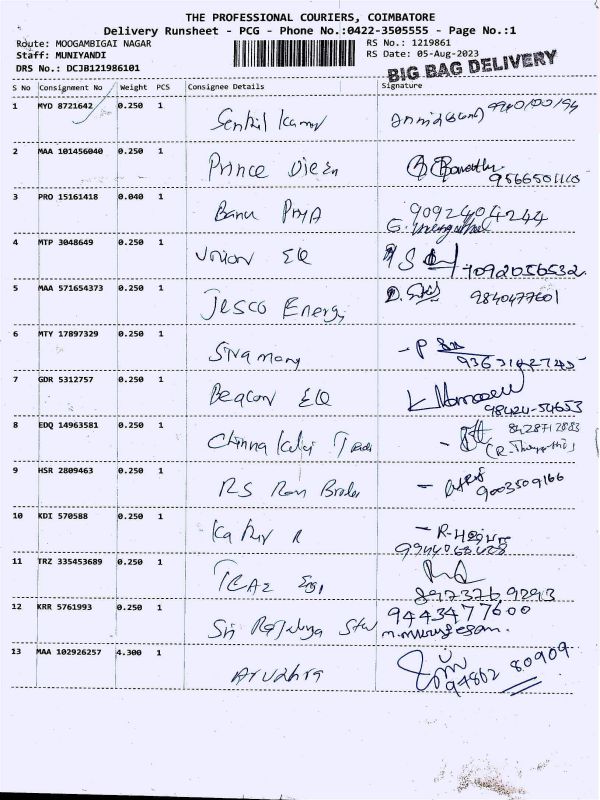 THE PROFESSIONAL COURIERS, COIMBATORE
Delivery Runsheet - PCG - Phone No.:0422-3505555 - Page No.:1
Route: MOOGAMBIGAI NAGAR RS No.: 1219861
Staff: MUNIYANDI RS Date: 05-Aug-2023
DRS No.: DCJB121986101 BIG BAG DELIVERY
S No Consignment No Weight PCS Consignee Details Signature
1 MYD 8721642 0.250 1
2 MAA 101456040 0.250 1 Prince
9566501110
3 PRO 15161418 0.040 1 Banu Priya 9092404244
4 MTP 3048649 0.250 1 Union EQ 7092056532
5 MAA 571654373 0.250 1 Jesco Energy 9840477601
6 MTY 17897329 0.250 1 Sivamany - P
9363142745
7 GDR 5312757 0.250 1 Beacon EQ
98424-54653
8 EDQ 14963581 0.250 1 8428712883
9 HSR 2809463 0.250 1 RS 9003509166
10 KDI 570588 0.250 1
11 TRZ 335453689 0.250 1
12 KRR 5761993 0.250 1 Sri 9443477600
m.murugesan.
13 MAA 102926257 4.300 1 Arudhra 94862 80909